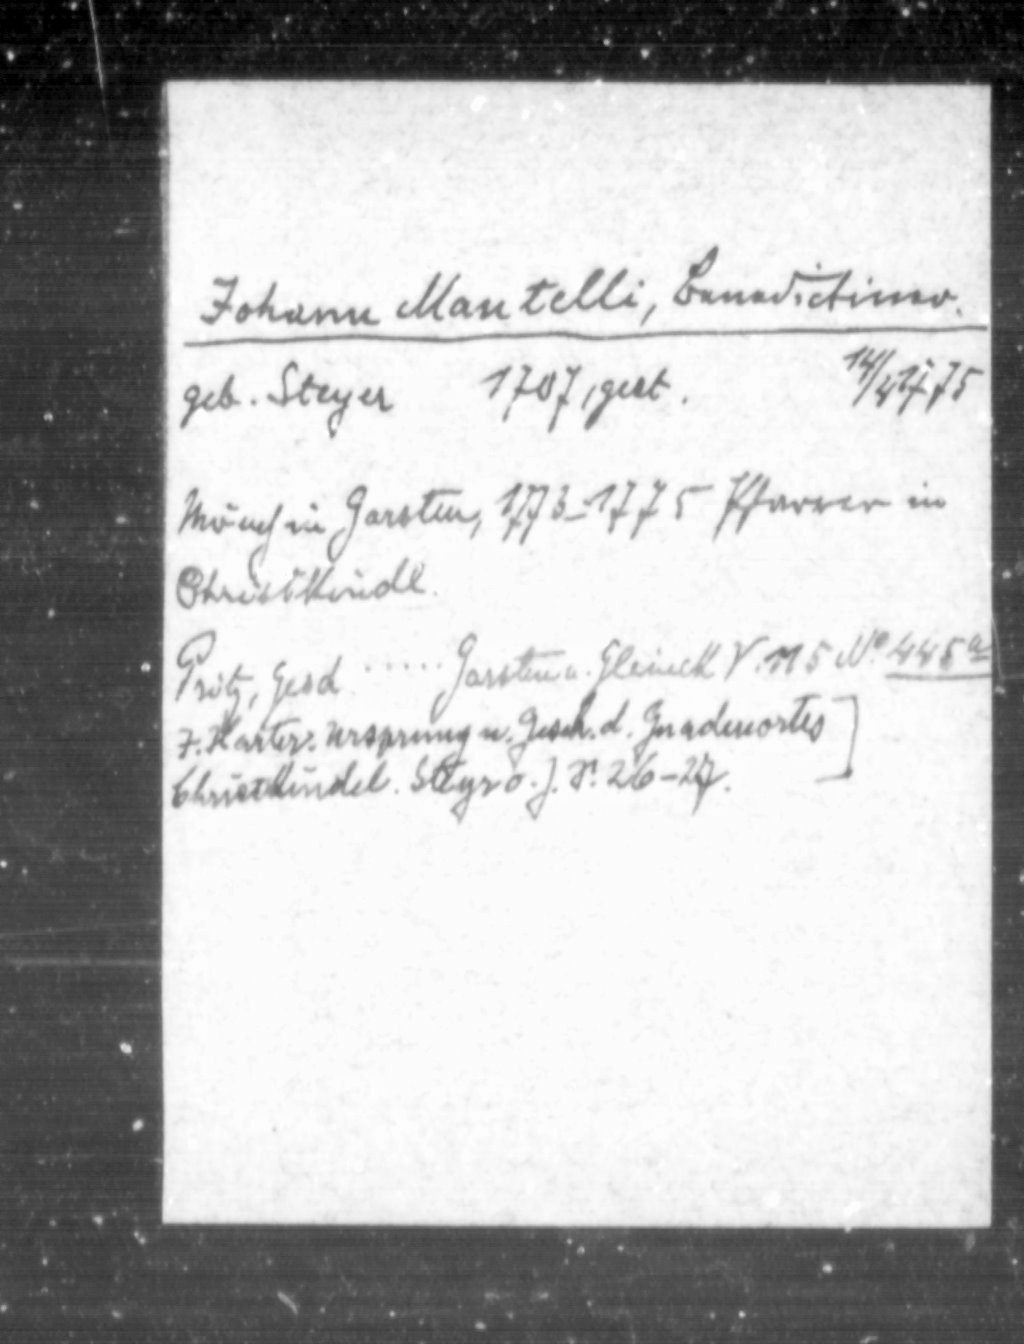 Johann Mantelli, Benedictiner.
geb. Steyer 1707, gest. 14/4 1775
Mönch in Garsten, 1773-1775 Pfarrer in
Christkindl.
Pritz, Gesch ..... Garsten u. Gleinck S. 115 No. 445a
F. Harter. Ursprung u. Gesch. d. Gnadenortes]
Christkindel. Steyr o. J. S. 26-27.